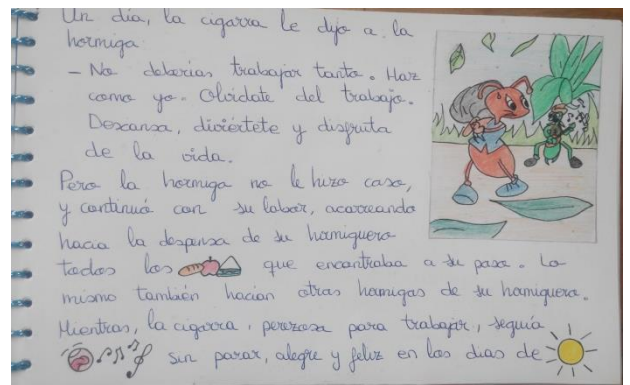 Un día, la cigarra le dijo a la
hormiga
- No deberías trabajar tanto. Haz
como yo. Olvídate del trabajo.
Descansa, diviértete y disfruta
de la vida.
Pero la hormiga no le hizo caso,
y continuó con su labor, acarreando
hacia la despensa de su hormiguero
todos los que encontraba a su paso. Lo
mismo también hacían otras hormigas de su hormiguero.
Mientras, la cigarra, perezosa para trabajar, seguía
sin parar, alegre y feliz en los días de